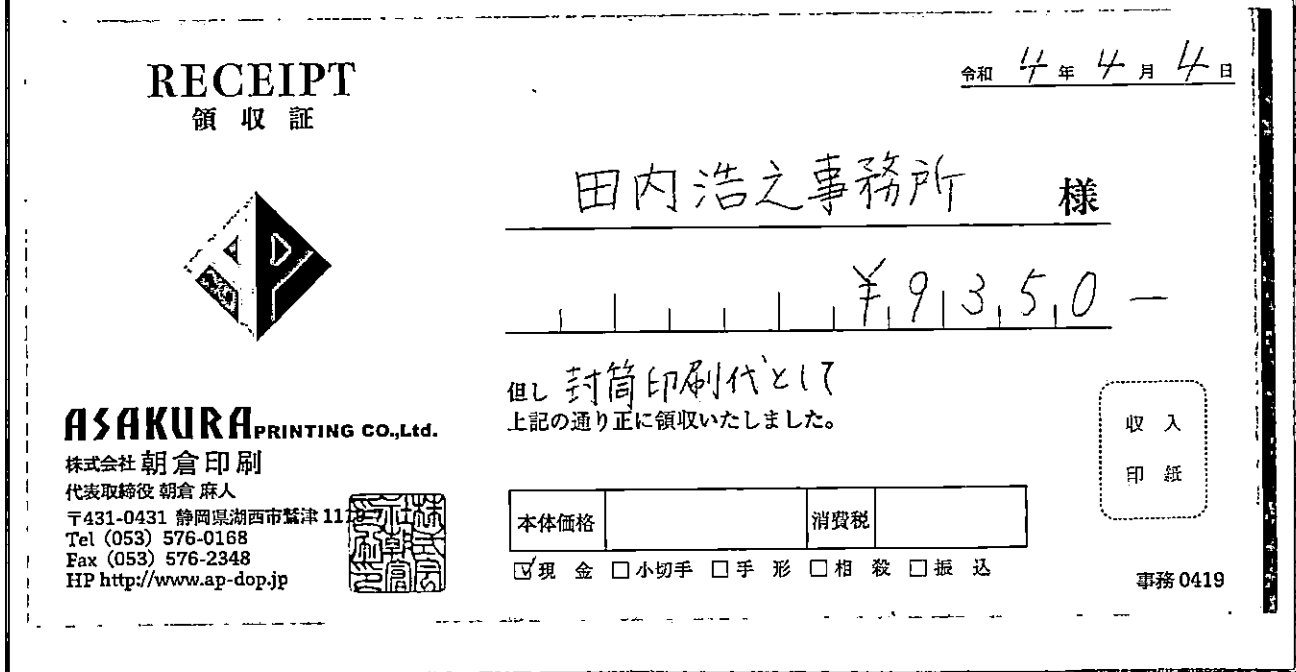 RECEIPT
領収証
令和 4年 4月 4日
田内浩之事務所 様
¥9350―
但し 封筒印刷代として
上記の通り正に領収いたしました。
収入
印紙
AP
ASAKURA PRINTING CO.,Ltd.
株式会社 朝倉印刷
代表取締役 朝倉 麻人
〒431-0431 静岡県湖西市鷲津
Tel (053) 576-0168
Fax (053) 576-2348
HP http://www.ap-dop.jp
本体価格 消費税
☑現金 □小切手 □手形 □相殺 □振込
事務 0419